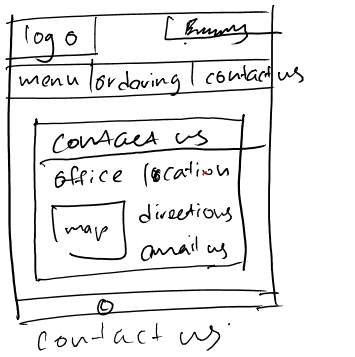 logo
menu ordering contact us
contact us
office location
map directions
email us
©
contact us